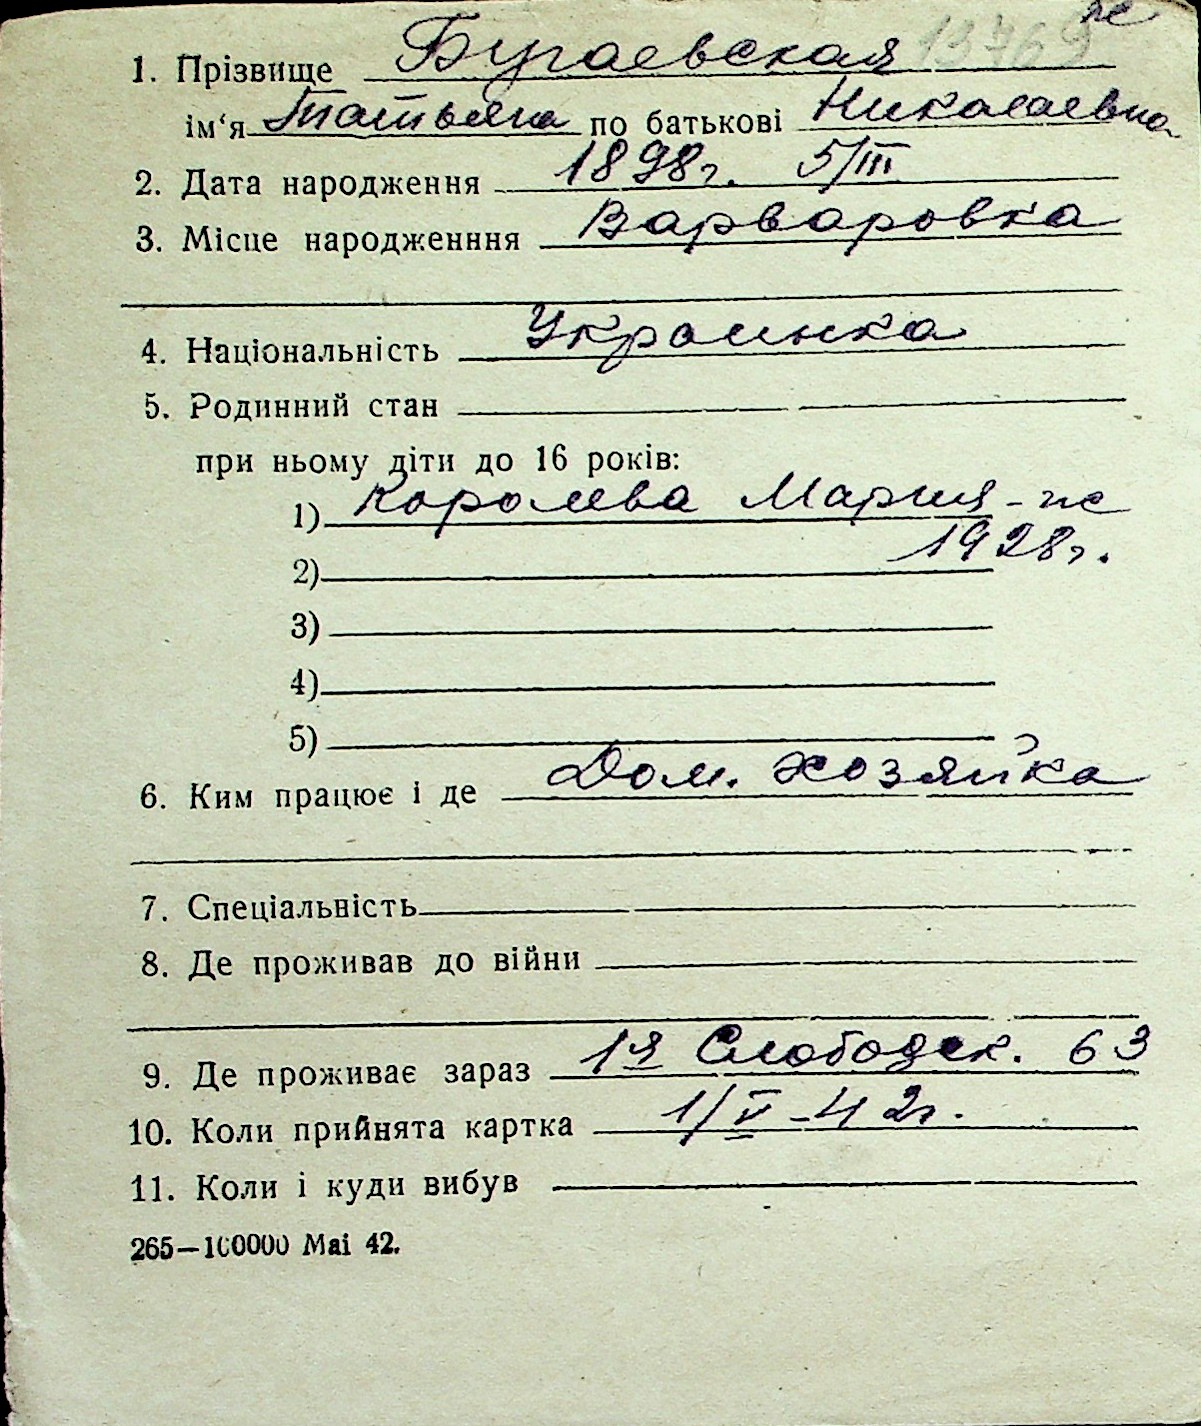 1. Прізвище Бугаевская 13769
ім'я Татьяна по батькові Николаевна
2. Дата народження 1898г. 5/III
3. Місце народженння Варваровка
4. Національність Украинка
5. Родинний стан
при ньому діти до 16 років:
1) Королева Мария - пс
2) 1928г.
3)
4)
5)
6. Ким працює і де Дом. хозяйка
7. Спеціальність
8. Де проживав до війни
9. Де проживає зараз 1я Слободск. 63
10. Коли прийнята картка 1/V-42г.
11. Коли і куди вибув
265—100000 Mai 42.